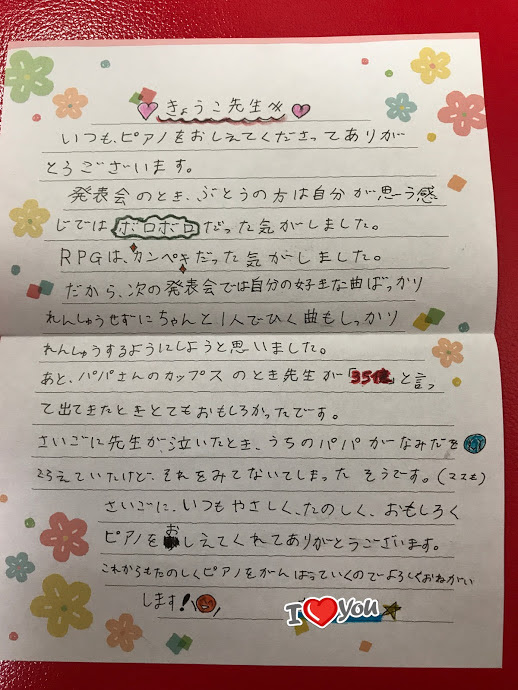 きょうこ先生へ
いつも、ピアノをおしえてくださってありが
とうございます。
発表会のとき、ぶとうの方は自分が思う感
じではボロボロだった気がしました。
RPGは、カンペキだった気がしました。
だから、次の発表会では自分の好きな曲ばっかり
れんしゅうせずにちゃんと1人でひく曲もしっかり
れんしゅうするようにしようと思いました。
あと、パパさんのカップスのとき先生が「35億」と言っ
て出てきたときとてもおもしろかったです。
さいごに先生が、泣いたとき、うちのパパがなみだを
こらえていたけど、それをみてないてしまったそうです。(ママも)
さいごに、いつもやさしく、たのしく、おもしろく
ピアノをおしえてくれてありがとうございます。
これからもたのしくピアノをがんばっていくのでよろしくおねがい
します!
I you